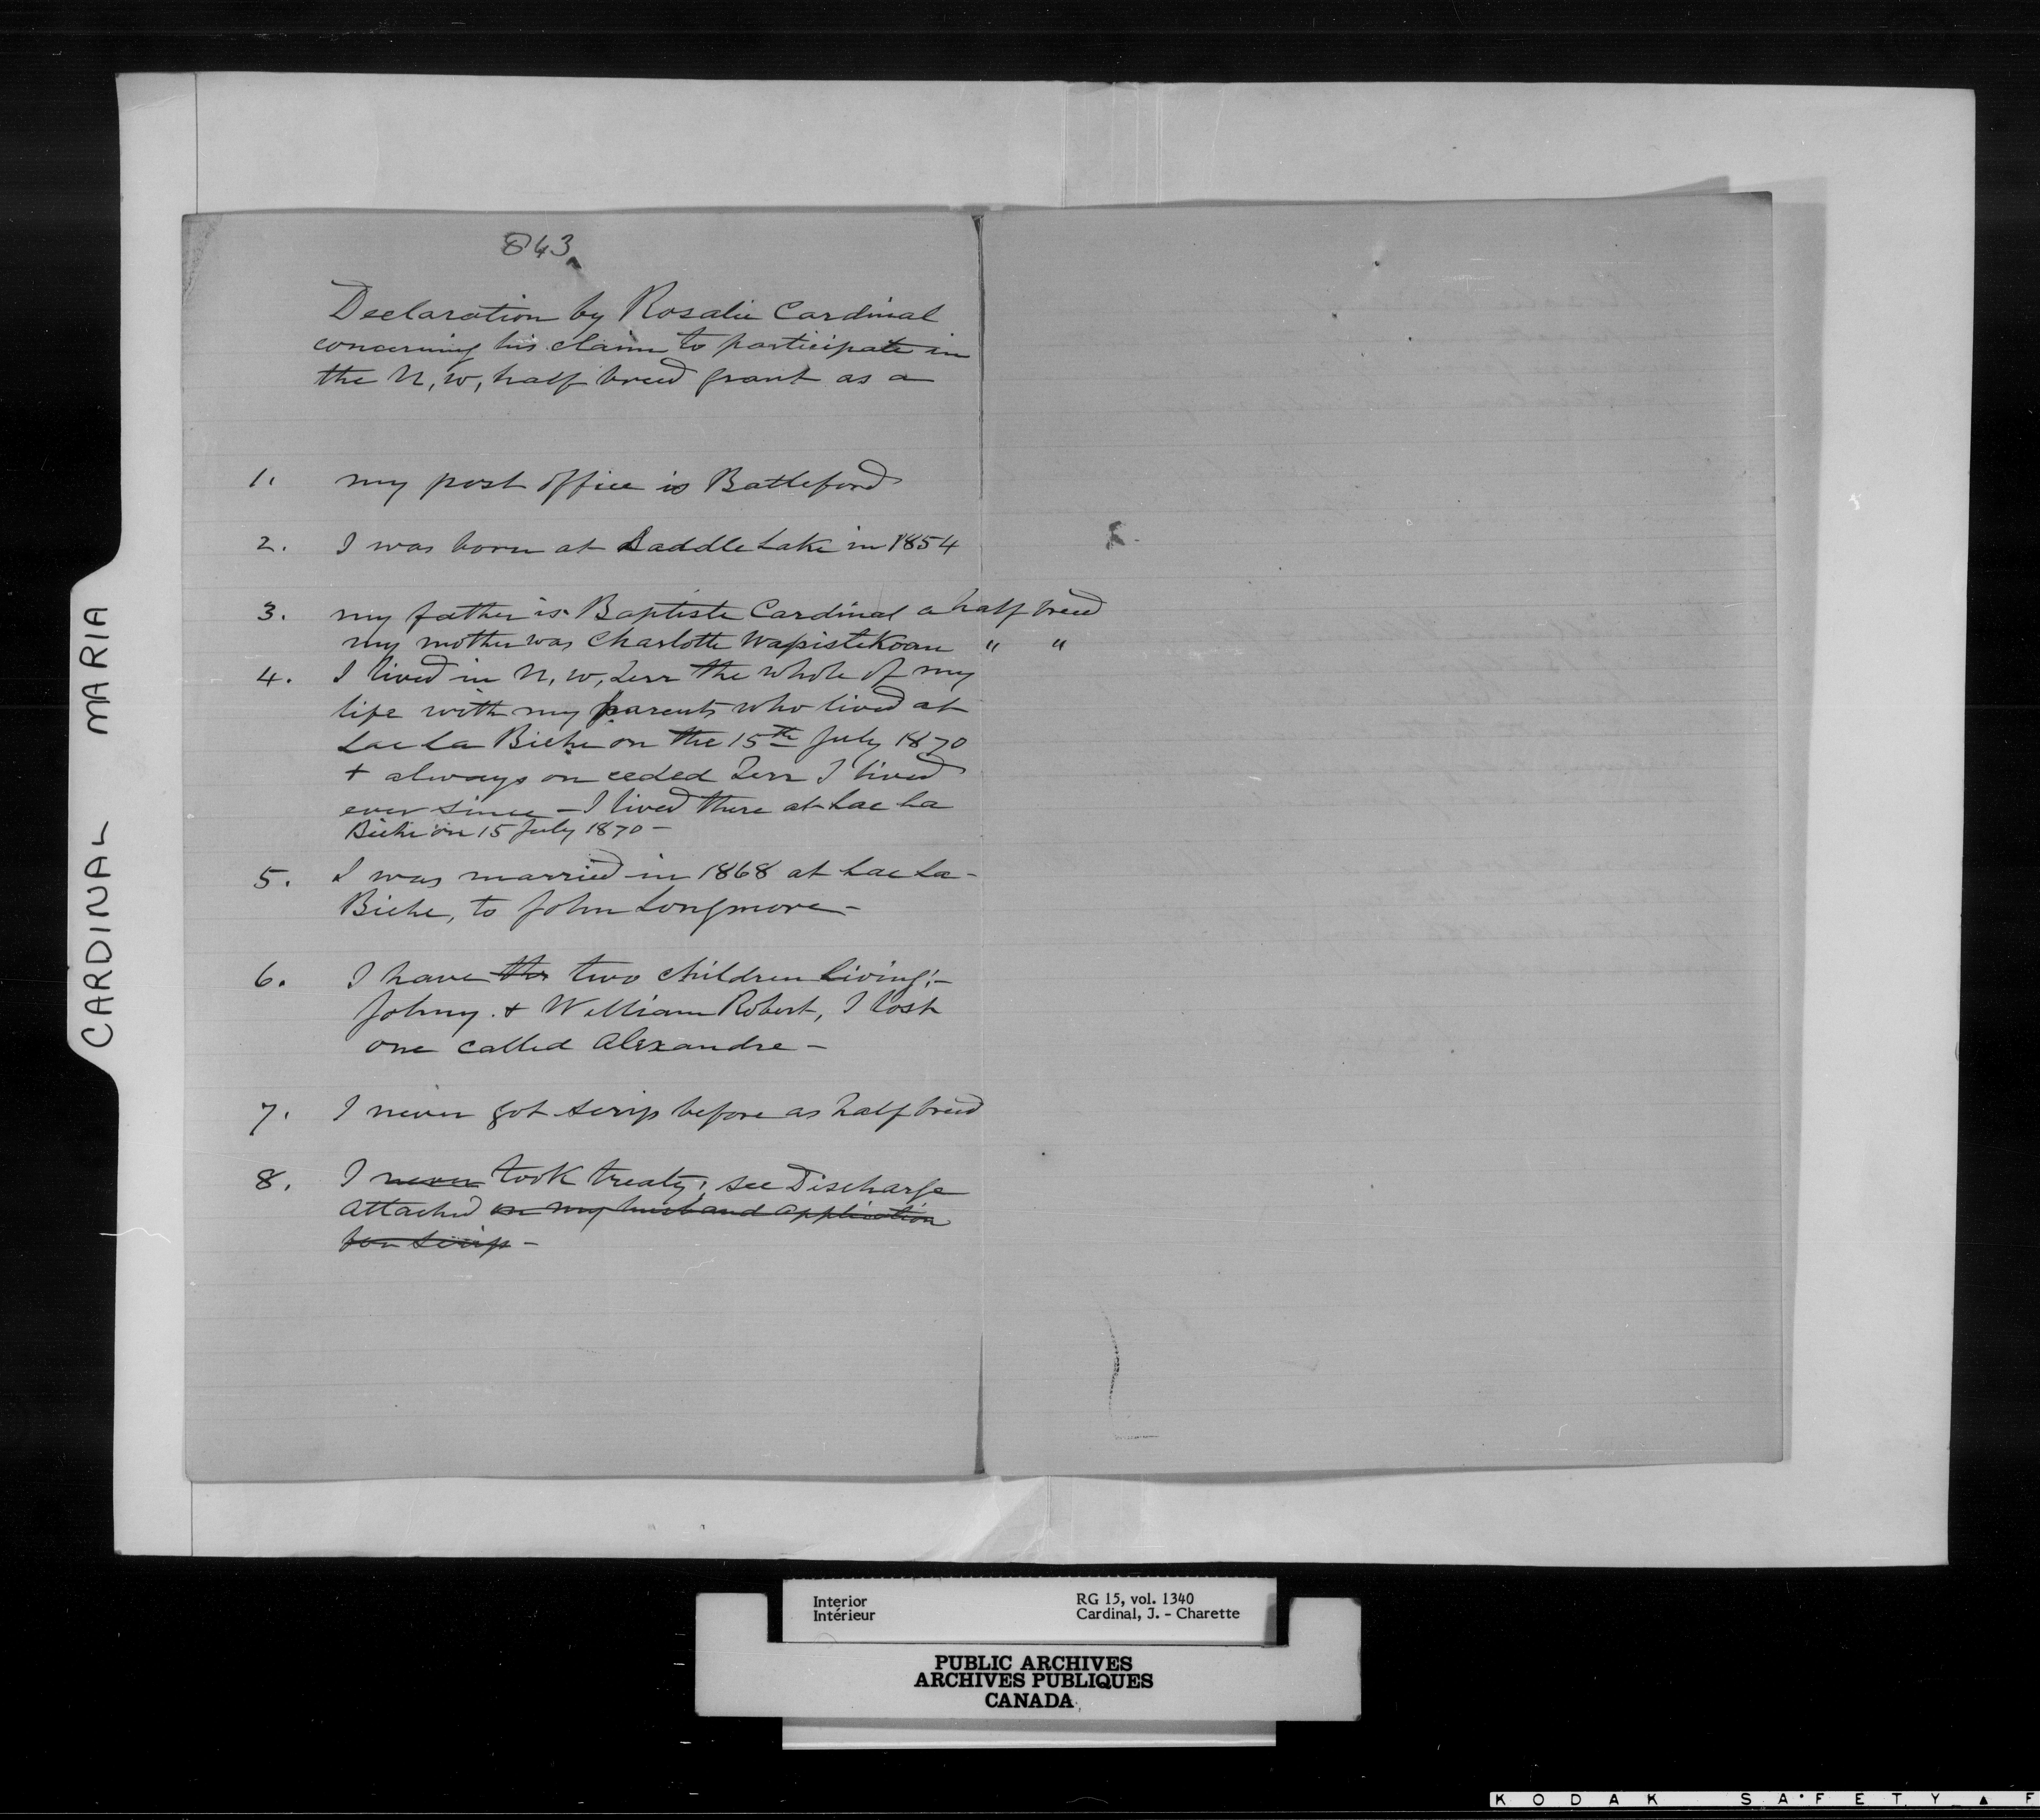 843
Declaration by Rosalie Cardinal
concerning his claim to participate in
the N, W, half breed grant as a
1. my post office is Battleford
2. I was born at Saddle Lake in 1854
3. my father is Baptiste Cardinal a half breed
my mother was Charlotte Wapistikoan " "
4. I lived in N, W, Terr the whole of my
life with my parents who lived at
Lac La Biche on the 15th July 1870
+ always on ceded Terr I lived
ever since - I lived there at Lac La
Biche on 15 July 1870 -
5. I was married in 1868 at Lac La-
Biche, to John Longmore -
6. I have the two children living:-
Johny. + William Robert, I lost
one called Alexandre -
7. I never got scrip before as half breed
8. I never took treaty; see Discharge
attached in my husband application
for scrip -
CARDINAL MARIA
Interior RG 15, vol. 1340
Intérieur Cardinal, J. - Charette
PUBLIC ARCHIVES
ARCHIVES PUBLIQUES
CANADA
KODAK SAFETY ▲ F